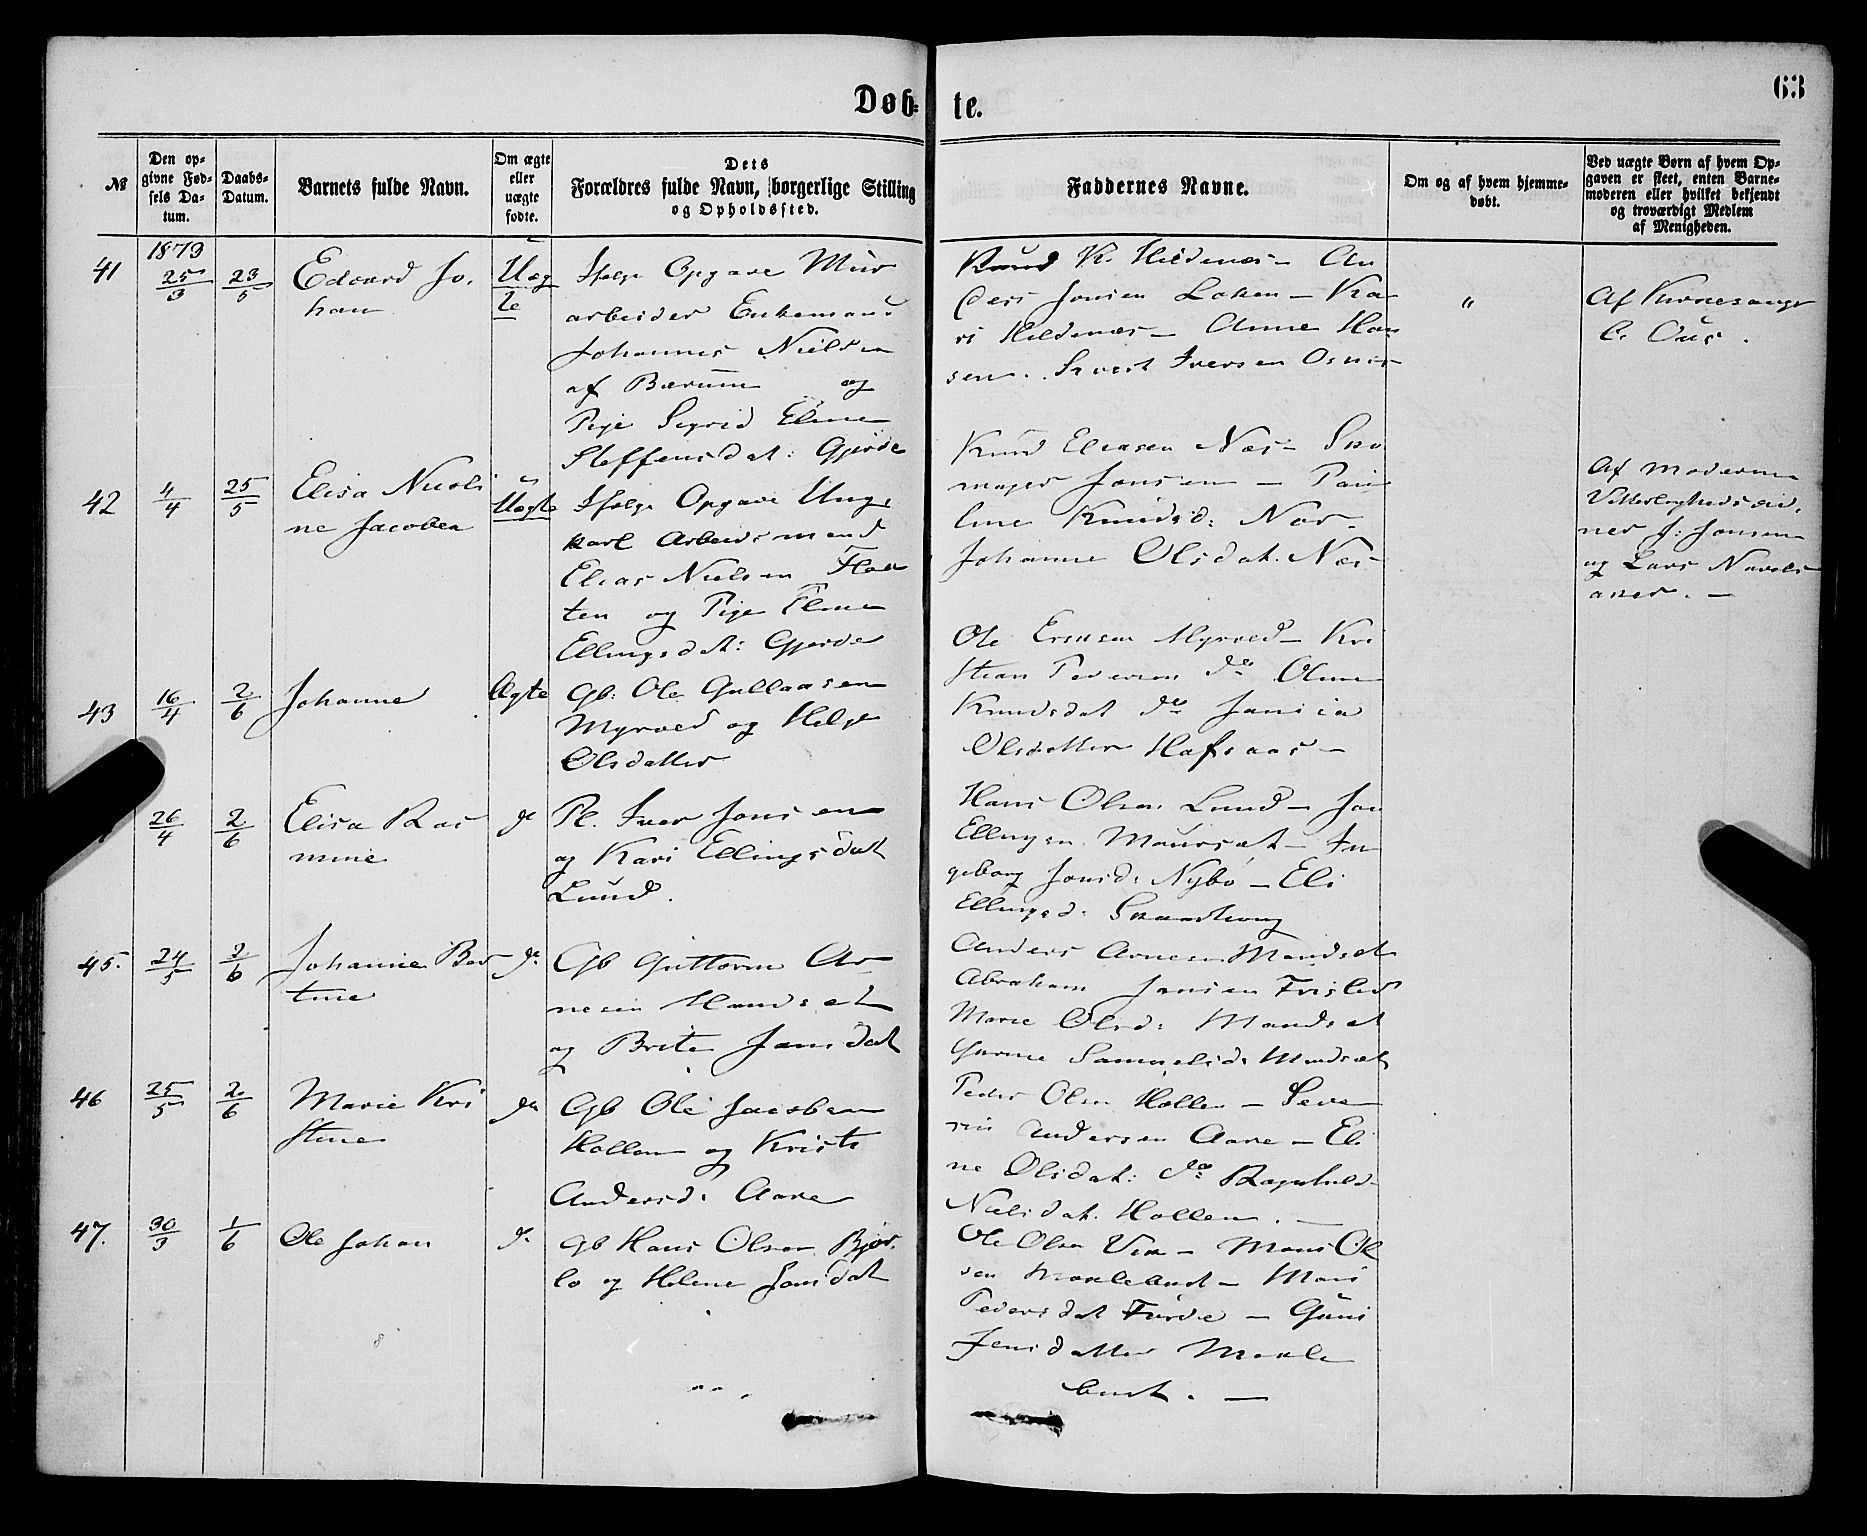 Døb-
te.
63
№
Den op-
givne Fød-
sels Da-
tum.
Daabs-
Datum.
Barnets fulde Navn.
Om ægte
eller
uægte
fødte.
Dets
Forældres fulde Navn, borgerlige Stilling
og Opholdssted.
Faddernes Navne.
Om og af hvem hjemme-
døbt.
Ved uægte Børn af hvem Op-
gaven er skeet, enten Barne-
moderen eller hvilket bekjendt
og troværdigt Medlem
af Menigheden.
1873
41
25/3
23/5
Edvard Jo-
han
Uæg
te
Ifølge Opgave Mur
arbeider Enkemand
Johannes Nielsen
af Bærum og
Pige Sigrid Eline
Steffensdat: Gjerde
Knud K. Hildenæs – An
ders Jonsen Løken – Ka
ri Hildenæs – Anne Han
sen. Sivert Iversen Osnes
"
Af Kirkesanger
C. Aus.
42
4/4
25/5
Elisa Nicoli
ne Jacobea
Uægte
Ifølge Opgave Unge
karl Arbeidsmand
Elias Nielsen Flaa
ten og Pige Eline
Ellingsdat: Gjerde
Knud Eliasen Næs – Sko
mager Jonsen – Pau
line Knudsd: Næs –
Johanne Olsdat. Næs
Af Moderen
Vitterlighedsvid-
ner J: Jonsen
og Lars Navels
aker. –
43
16/4
2/6
Johanne
Ægte
Gb: Ole Gullaksen
Myrved og Helge
Olsdatter
Ole Ersesen Myrved – Kri
stian Pedersen do Oline
Knudsdat do Jansia
Olsdatter Hafsaas –
26/4
2/6
Elisa Ras
mine
do
Pl. Iver Jonsen
og Kari Ellingsdat
Lund.
Hans Olsen Lund – Jon
Ellingsen Maursæt – In
geborg Jonsd: Nybø – Eli
Ellingsd:
45.
24/5
2/6
Johanne Ber
tine
do
Gb Guttorm Ar
nesen Mandsæt
og Brite Jansdat
Anders Arnesen Mandsæt
Abraham Jansen Frislid
Marie Olsd: Mandsæt
Gurine Samuelsd: Mandsæt
46
25/5
2/6
Marie Kri
stine
do
Gb Ole Jacobsen
Hollen og Kriste
Andersd: Aare
Peder Olsen Hollen – Seve
rin Andersen Aare – Eli
ne Olsdat: do Ragnhild
Nielsdat. Hollen. –
47.
30/3
1/6
Ole Johan
do
Gb Hans Olsen Bjør-
lo og Helene Jonsdat
Ole Olsen Vik – Mons Ol
sen Meklebust – Mari
Pedersdat Førde – Guni
Jensdatter Mekle
bust. –